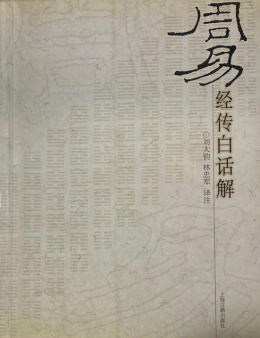 周易
经传白话解
◎刘大钧 林忠军 译注
上海古籍出版社